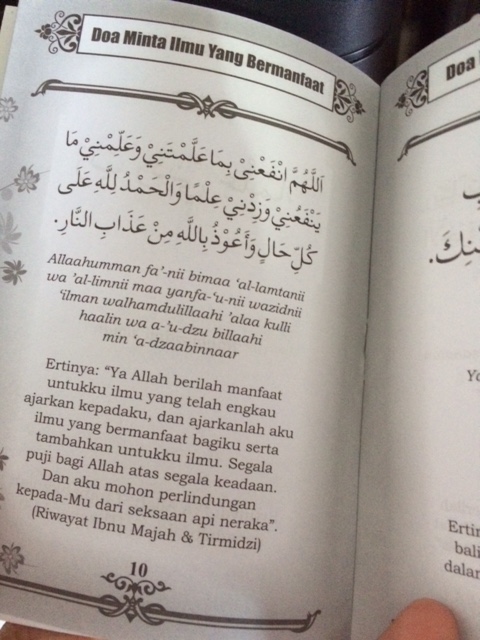 Doa Minta Ilmu Yang Bermanfaat
اَللَّهُمَّ انْفَعْنِيْ بِمَا عَلَّمْتَنِيْ وَعَلِّمْنِيْ مَا
يَنْفَعُنِيْ وَزِدْنِيْ عِلْمًا وَالْحَمْدُ لِلَّهِ عَلَى
كُلِّ حَالٍ وَأَعُوْذُ بِاللَّهِ مِنْ عَذَابِ النَّارِ.
Allaahumman fa'-nii bimaa 'al-lamtanii
wa 'al-limnii maa yanfa-'u-nii wazidnii
'ilman walhamdulillaahi 'alaa kulli
haalin wa a-'u-dzu billaahi
min 'a-dzaabinnaar
Ertinya: “Ya Allah berilah manfaat
untukku ilmu yang telah engkau
ajarkan kepadaku, dan ajarkanlah aku
ilmu yang bermanfaat bagiku serta
tambahkan untukku ilmu. Segala
puji bagi Allah atas segala keadaan.
Dan aku mohon perlindungan
kepada-Mu dari seksaan api neraka”.
(Riwayat Ibnu Majah & Tirmidzi)
10
Doa